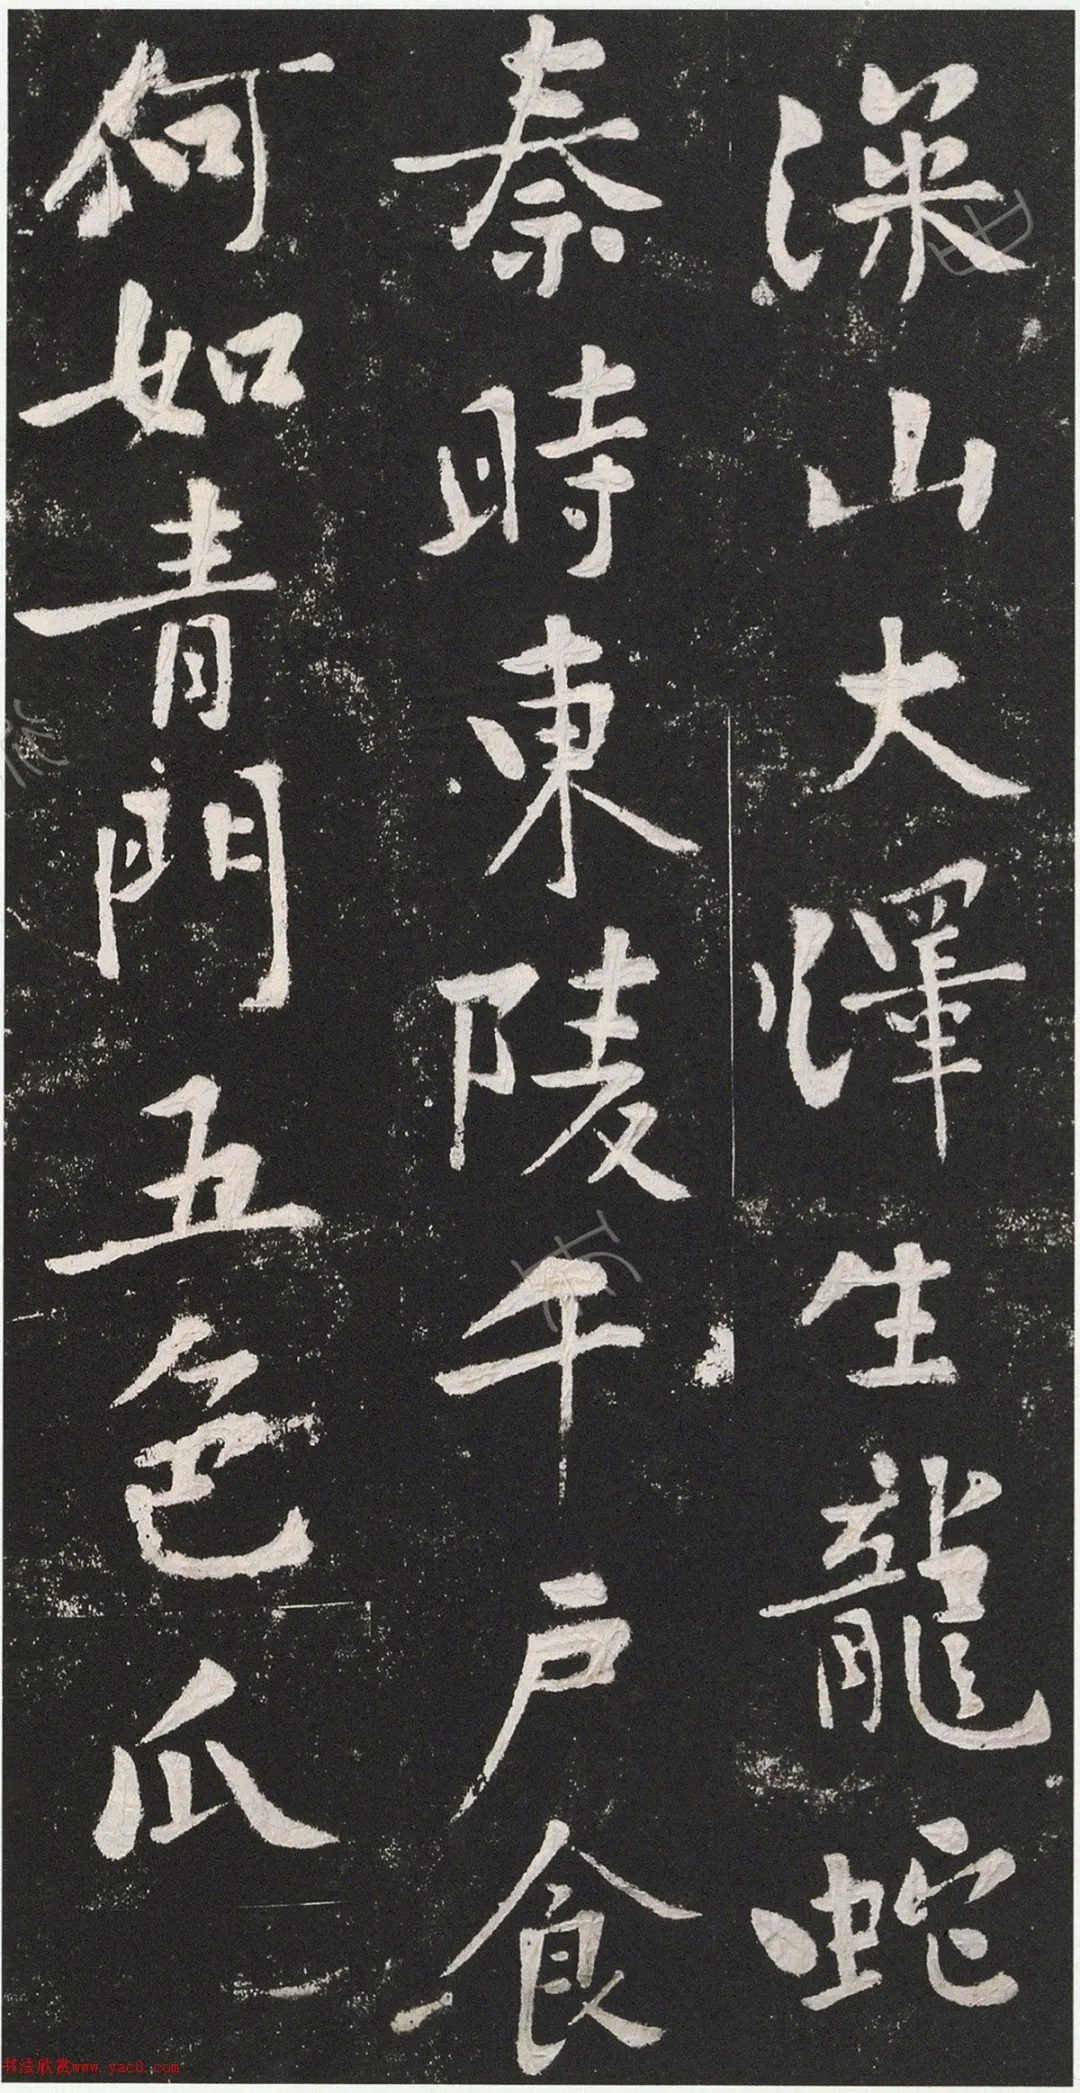 深山大澤生龍蛇
秦時東陵千戶食
何如青門五色瓜
书法欣赏www.yac8.com